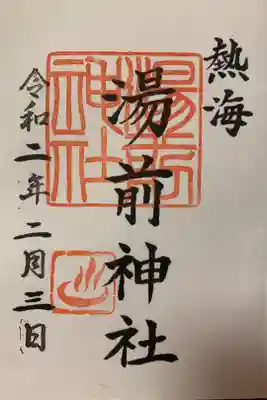 熱海
湯前神社
令和二年二月三日
湯前神社